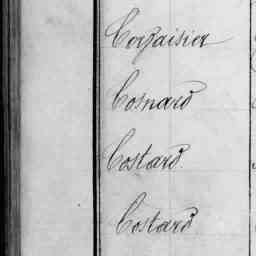 Corzaisier
Cosnard
Costard
Costard